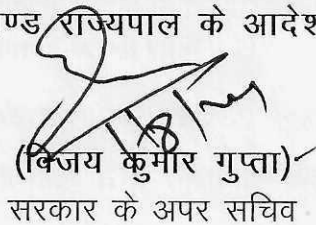 ण्ड राज्यपाल के आदेश
(विजय कुमार गुप्ता)
सरकार के अपर सचिव